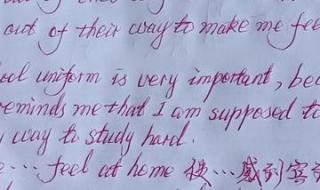 out of their way to make me fee
ool uniform is very important, bec
reminds me that I am supposed to
way to study hard.
... feel at home 使...感到宾